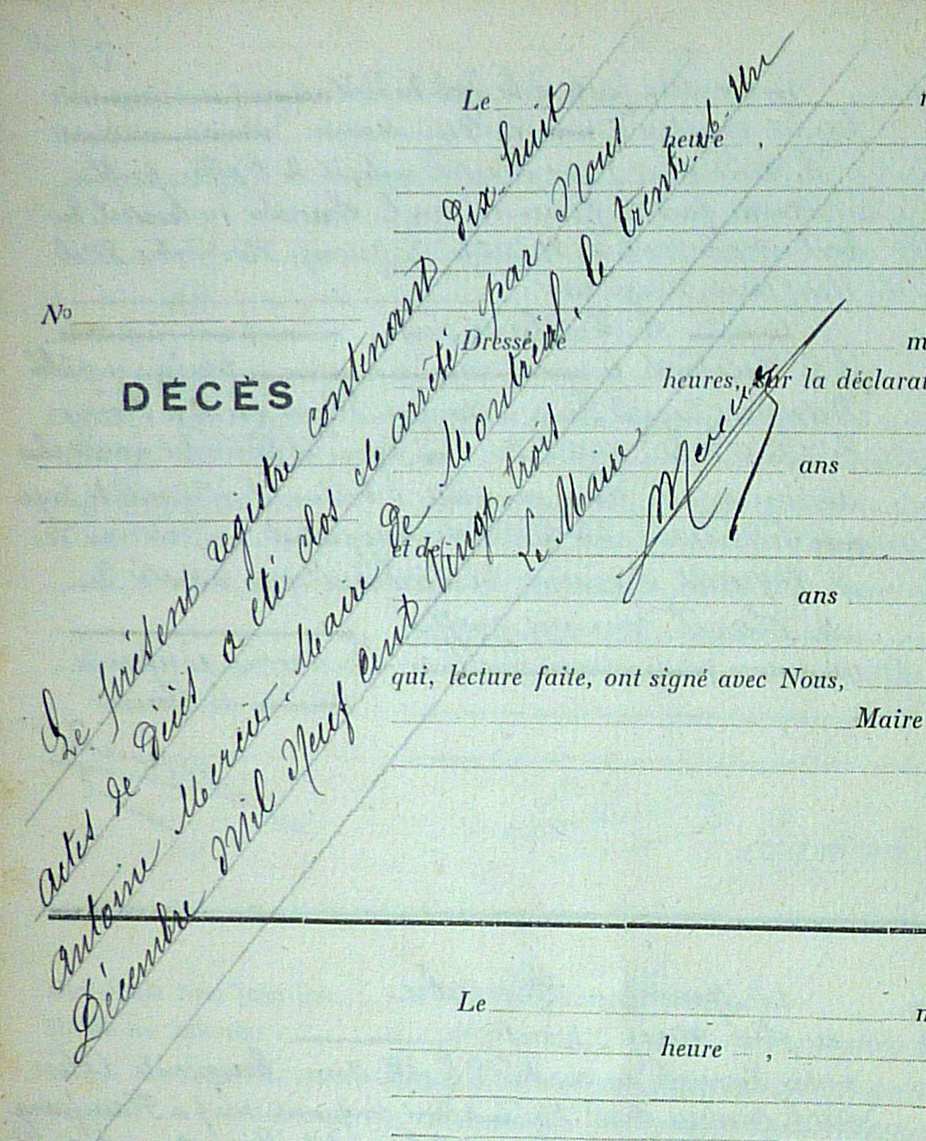 Le
heure ,
No
Dressé, le
DÉCÈS
heures, sur la déclarat
ans
et de
ans
qui, lecture faite, ont signé avec Nous,
Maire
Le présent registre contenant dix-huit
actes de décès a été clos et arrêté par Nous
Antoine Mercier, Maire de Montréal, le trente-et-un
Décembre Mil Neuf cent Vingt trois
Le Maire
Mercier
Le
heure ,